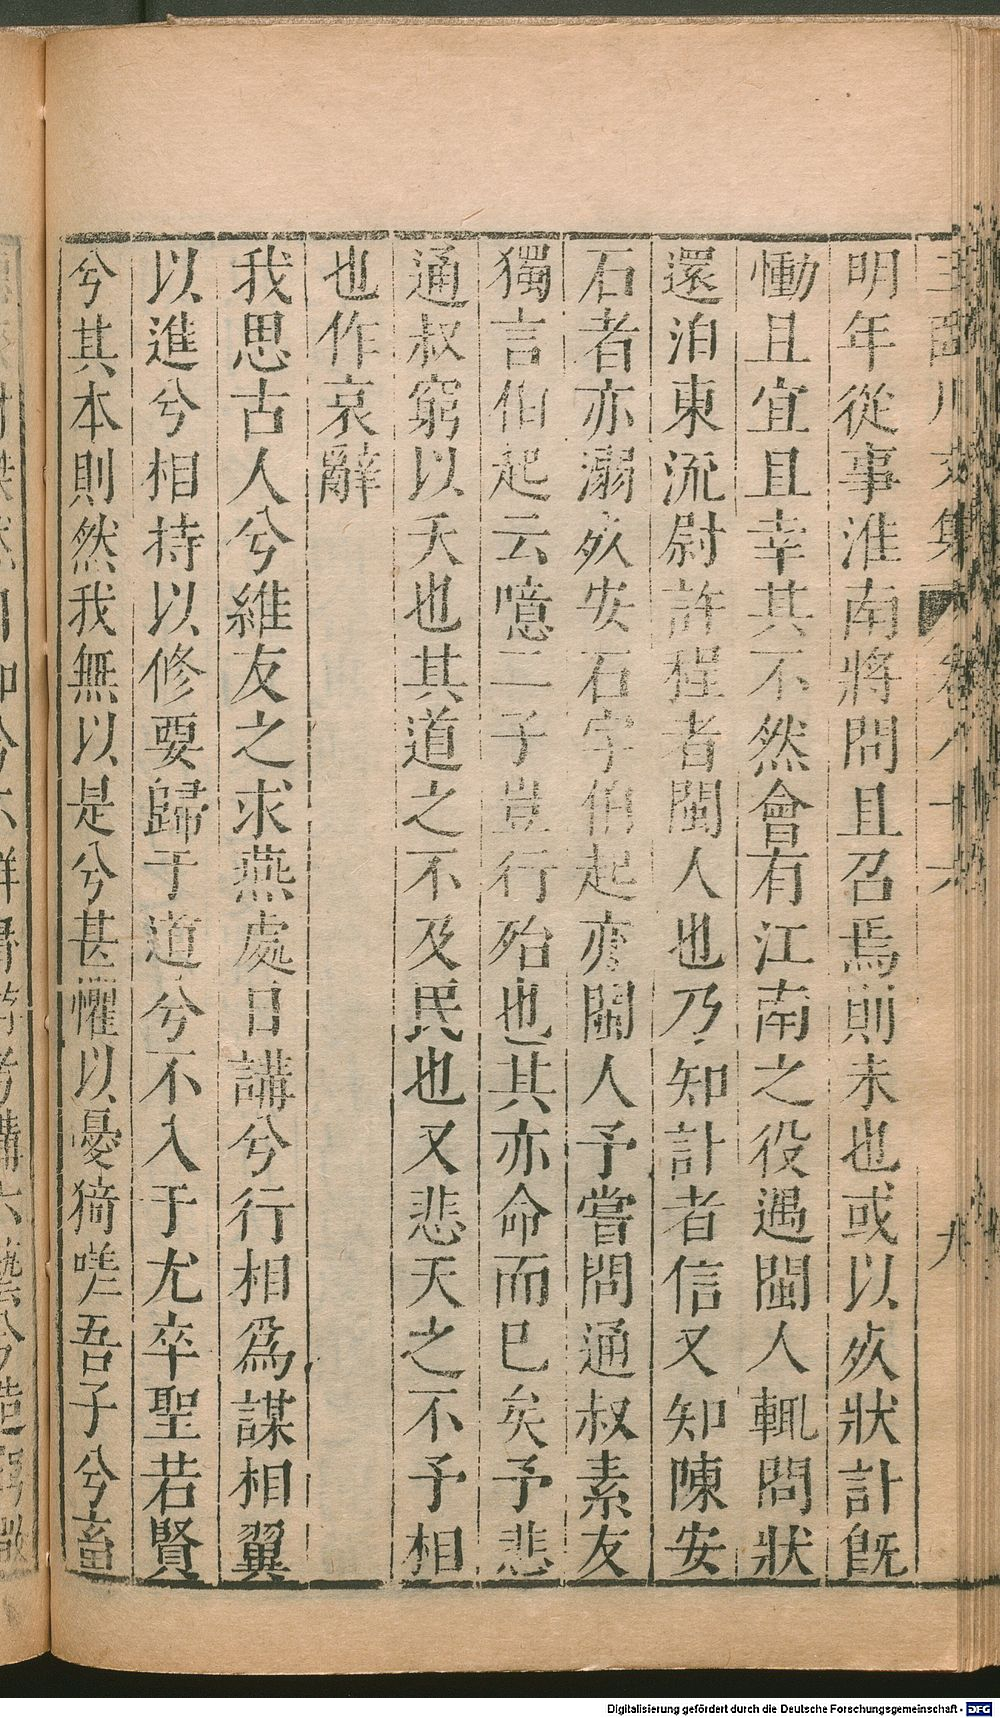 明年從事淮南將問且召焉則未也或以㱙狀訃旣
慟且宜且幸其不然會有江南之役遇閩人輒問狀
還泊東流尉許程者閩人也乃知訃者信又知陳安
石者亦溺㱙安石字伯起亦閩人予嘗問通叔素友
獨言伯起云噫二子豈行殆也其亦命而已矣予悲
通叔窮以夭也其道之不及民也又悲天之不予相
也作哀辭
我思古人兮維友之求燕處日講兮行相爲謀相翼
以進兮相持以修要歸于道兮不入于尤卒聖若賢
兮其本則然我無以是兮甚懼以憂猗嗟吾子兮畜
九
Digitalisierung gefördert durch die Deutsche Forschungsgemeinschaft - DFG